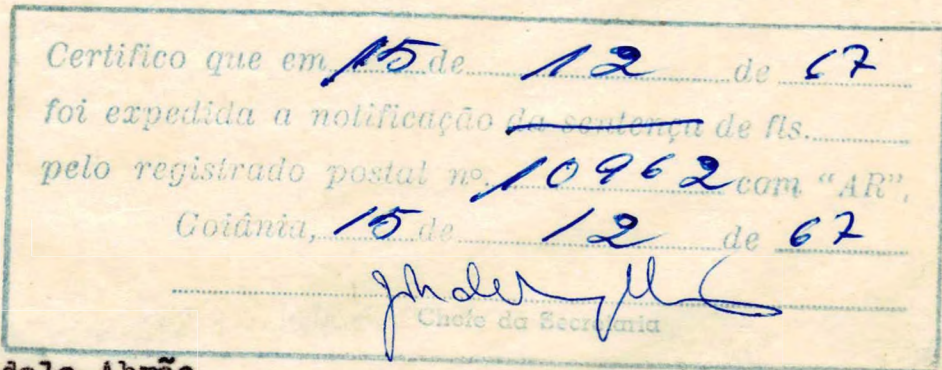 Certifico que em 15 de 12 de 67
foi expedida a notificação da sentença de fls.
pelo registrado postal nº 10962 com "AR".
Goiânia, 15 de 12 de 67
Chefe da Secretaria
Abrão